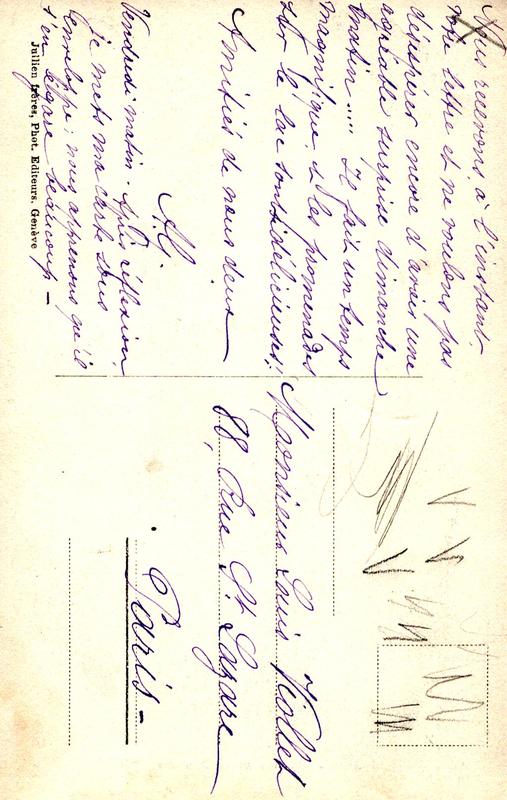 Nous recevons à l'instant
votre lettre et ne voulons pas
désespérer encore d'avoir une
agréable surprise dimanche
matin.... Il fait un temps
magnifique et les promenades
sur le lac sont délicieuses!!
Amitiés de nous deux
Vendredi matin. Après réflexion,
je mets ma carte sous
enveloppe; nous apprenons qu'il
s'en égare beaucoup -
Jullien frères, Phot. Editeurs, Genève
Monsieur Louis Viollet
88, Rue St Lazare
Paris -